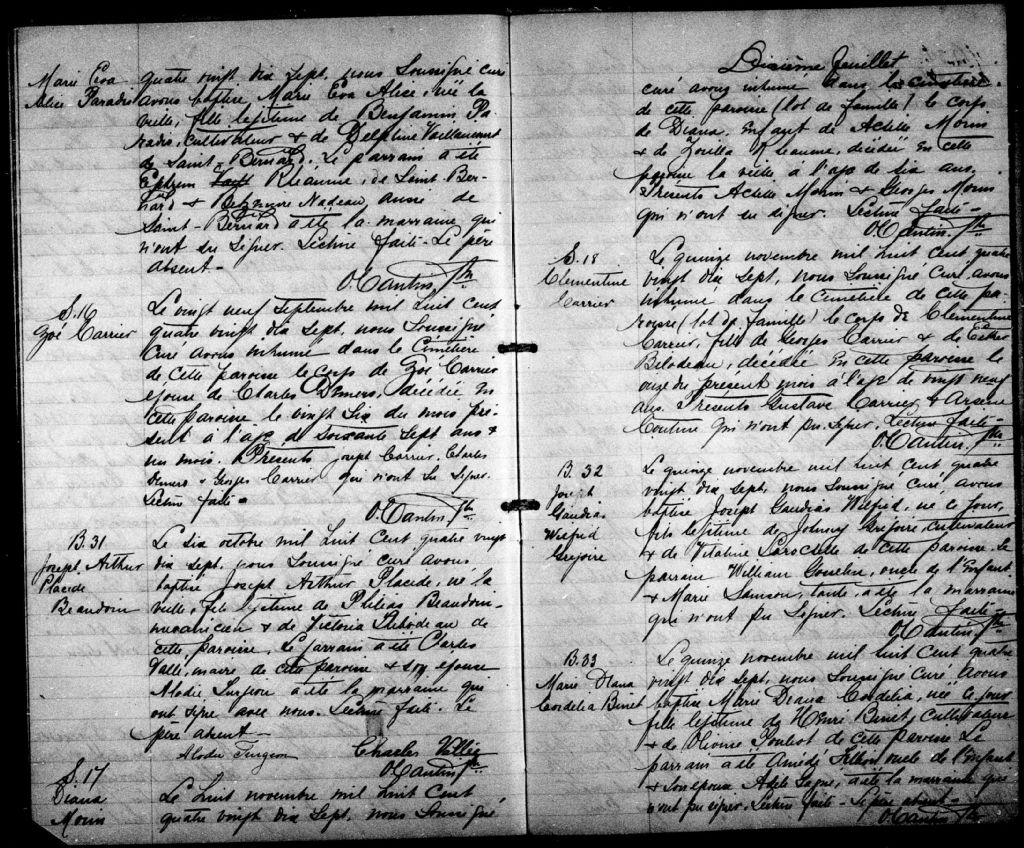 Marie Eva
Alice Paradis
quatre vingt dix sept, nous Soussigné curé
avons baptisé Marie Eva Alice, née la
veille, fille légitime de Benjamin Pa-
radis, cultivateur & de Delphine Vaillancourt
de Saint-Bernard. Le parrain a été
Ephrem Rhéaume, de Saint-Ber-
nard & Nadeau, aussi de
Saint-Bernard a été la marraine, qui
n'ont su signer. Lecture faite - Le père
absent -
O Cantin, Ptre
S. 16
Zoé Carrier
Le vingt neuf septembre mil huit cent
quatre vingt dix sept, nous Soussigné
Curé avons inhumé dans le Cimetière
de cette paroisse le corps de Zoé Carrier
épouse de Charles Demers, décédée en
cette paroisse le vingt six du mois pré-
sent à l'age de soixante sept ans &
un mois. Présents Joseph Carrier, Charles
Demers & Georges Carrier qui n'ont su signer.
Lecture faite -
O. Cantin Ptre
B. 31
Joseph, Arthur
Placide
Beaudoin
Le six octobre mil huit cent quatre vingt
dix sept, nous Soussigné curé avons
baptisé Joseph Arthur Placide, né la
veille, fils légitime de Philias Beaudoin
mecanicien & de Victoria de
cette paroisse. Le parrain a été Charles
Vallé, maire de cette paroisse & son épouse
Alodie Turgeon a été la marraine qui
ont signé avec nous. Lecture faite. Le
père absent -
Alodie Turgeon Charles Vallée
O Cantin Ptre
S. 17
Diana
Morin
Le huit novembre mil huit cent
quatre vingt dix sept, nous Soussigné
Dixième feuillet
curé avons inhumé dans le cimetière
de cette paroisse (lot de famille) le corps
de Diana, Enfant de Achille Morin
& de Zoella Rheaume, décédée en cette
paroisse la veille à l'age de six ans.
Présents Achille Morin & Georges Morin
qui n'ont su signer. Lecture faite -
O Cantin Ptre
S. 18
Clementine
Carrier
Le quinze novembre mil huit cent quatre
vingt dix sept, nous Soussigné Curé, avons
inhumé dans le Cimetière de cette pa-
roisse (lot de famille) le corps de Clementine
Carrier, fille de Georges Carrier & de Esther
Bilodeau, décédée en cette paroisse le
onze du present mois à l'age de vingt neuf
ans. Présents Gustave Carrier & Arsène
Couture qui n'ont pu signer. Lecture faite -
O Cantin Ptre
B. 32
Joseph
Gaudias
Wilfrid
Gregoire
Le quinze novembre mil huit cent quatre
vingt dix sept, nous Soussigné Curé, avons
baptisé Joseph Gaudias Wilfrid, né ce jour,
fils légitime de Johnny Grégoire cultivateur
& de Vitaline Larochelle de cette paroisse. Le
parrain William Gosselin, oncle de l'Enfant
& Marie Samson, tante, a été la marraine
qui n'ont pu signer. Lecture faite -
O Cantin Ptre
B. 33
Marie Diana
Cordelia Binet
Le quinze novembre mil huit cent quatre
vingt dix sept, nous Soussigné Curé, avons
baptisé Marie Diana Cordelia, née ce jour
fille légitime de Henri Binet, cultivateur
& de Pouliot de cette paroisse Le
parrain a été Amédé oncle de l'enfant
& son épouse Adèle a été la marraine qui
n'ont pu signer. Lecture faite - Le père absent -
O Cantin Ptre